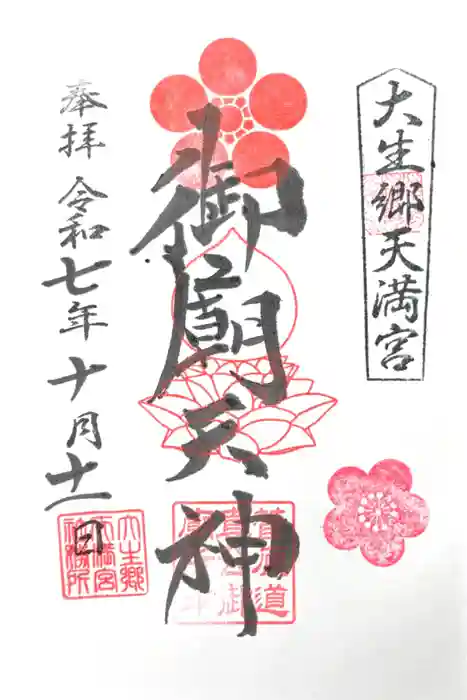 大生郷天満宮
御廟天神
奉拝 令和七年十月十一日
大生郷
天満宮
社務所